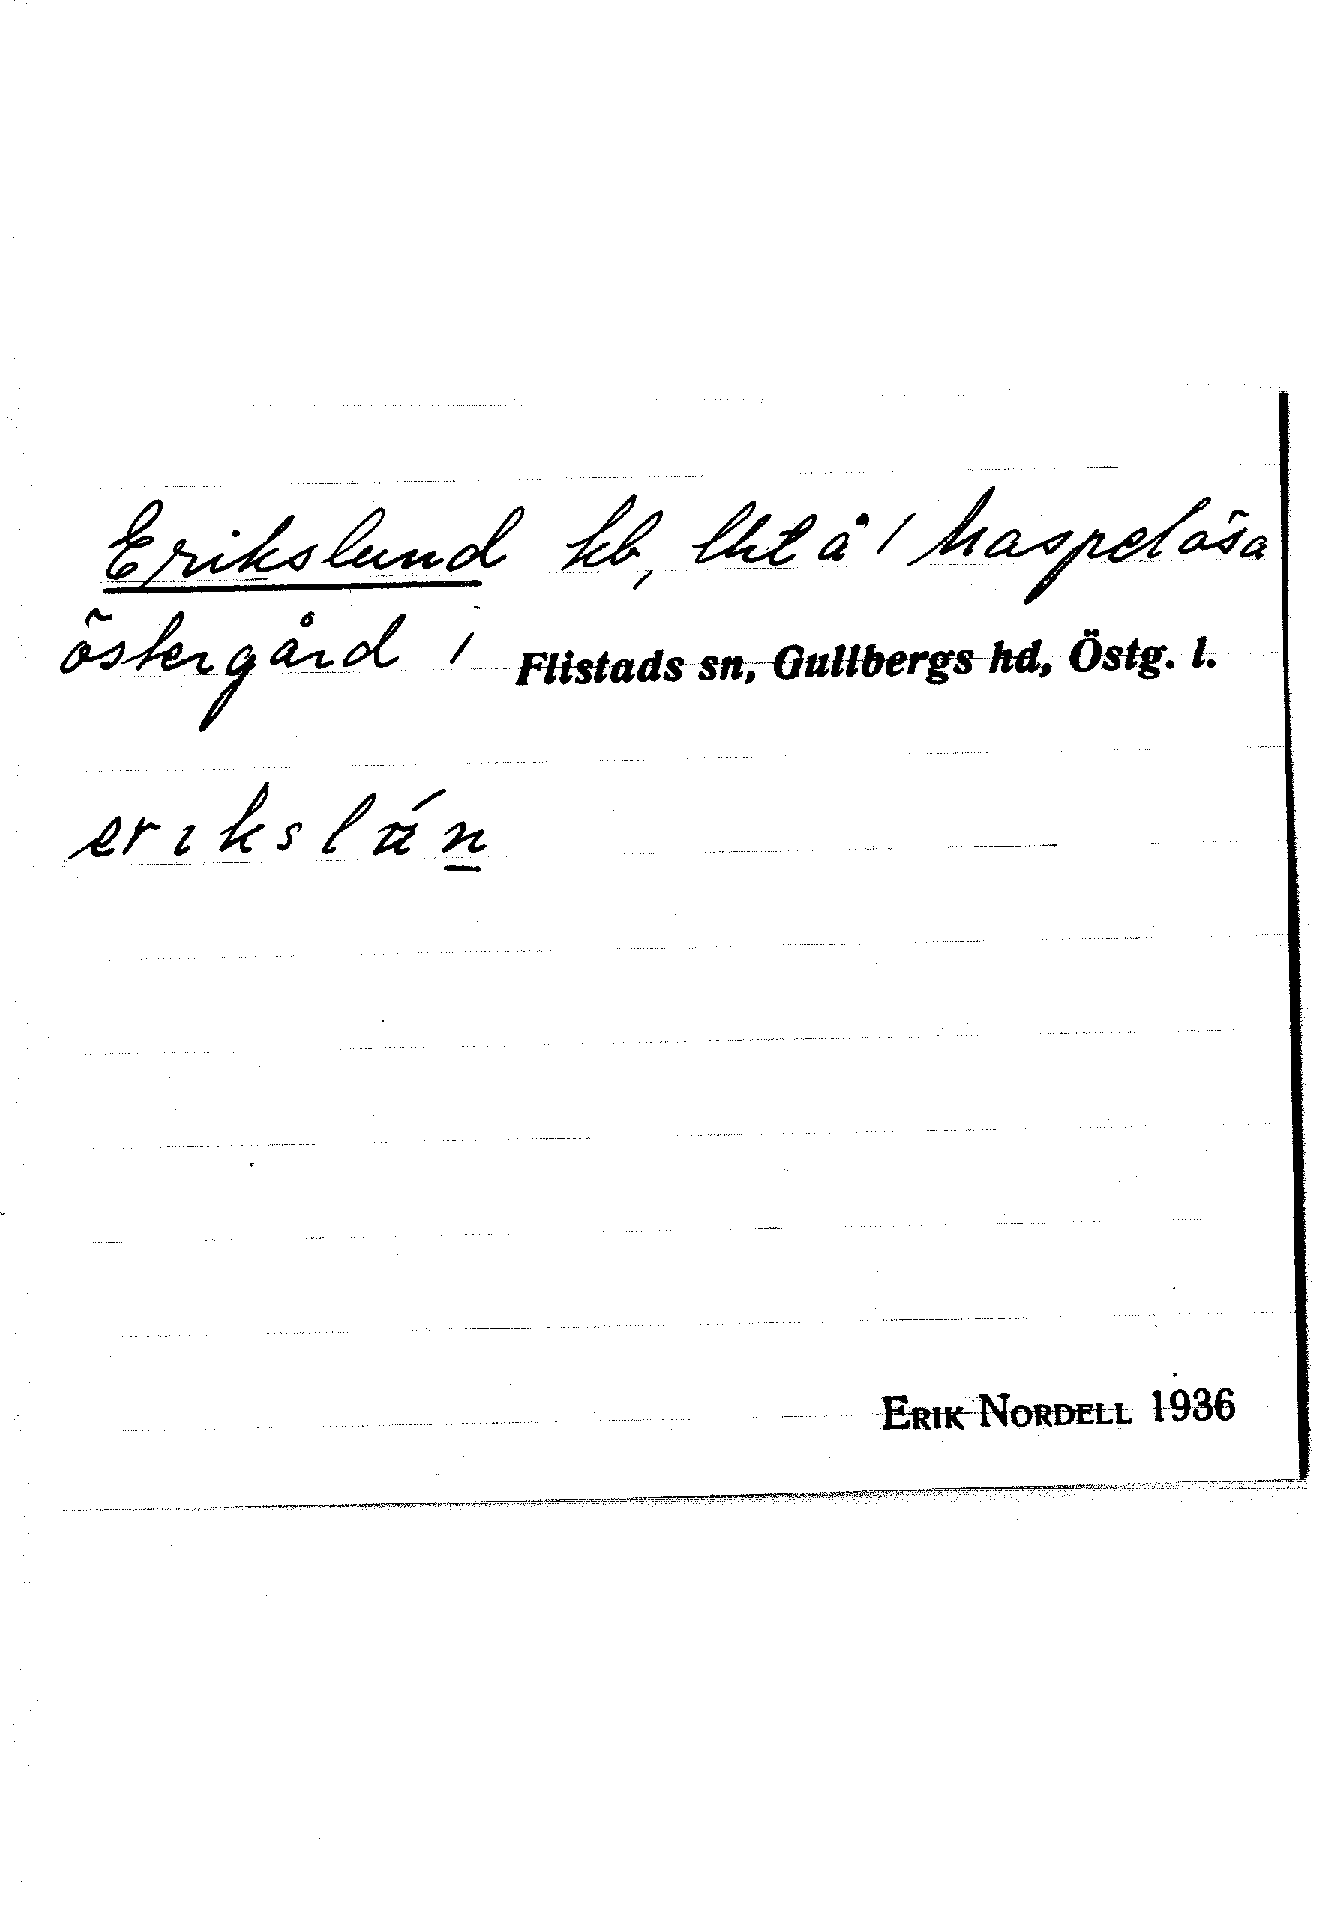 Erikslund kb, lht å 1 Maspelösa
östergård i Flistads sn, Gullbergs hd, Östg. l.
erikslún
ERIK NORDELL 1936